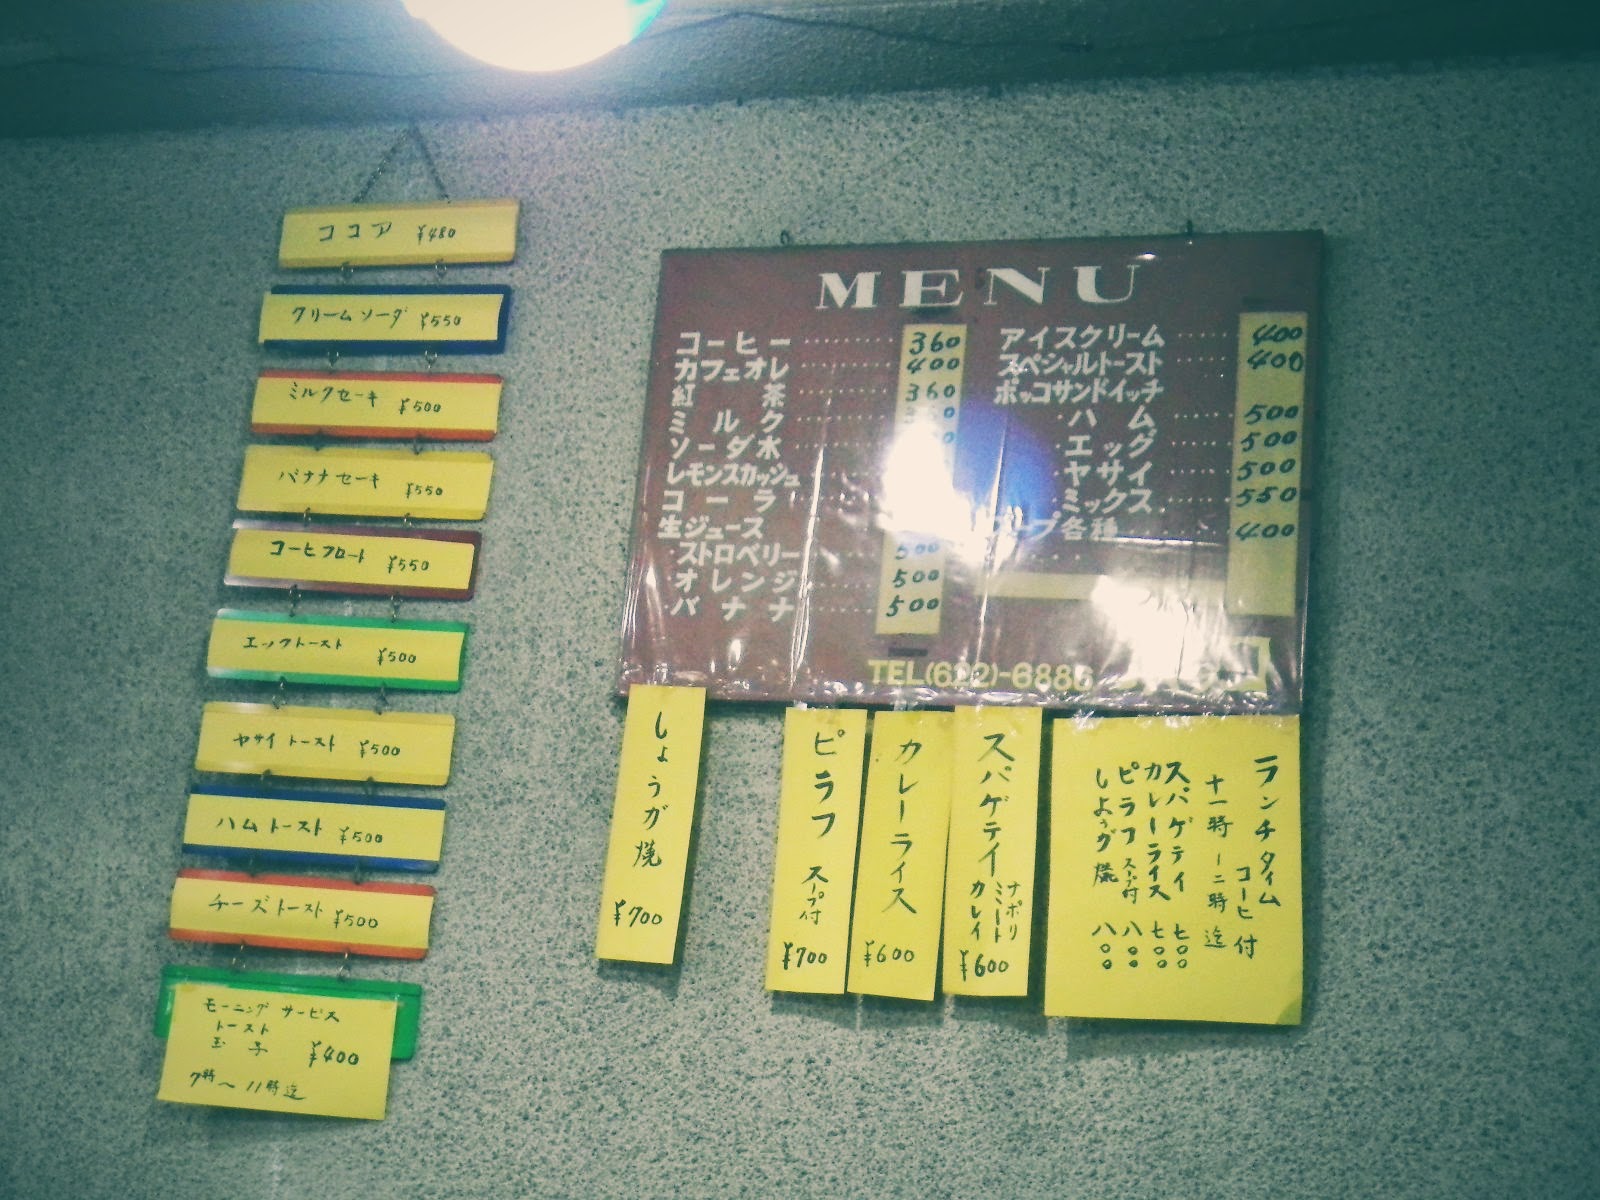 ココア ¥480
クリームソーダ ¥550
ミルクセーキ ¥500
バナナセーキ ¥550
コーヒフロート ¥550
エッグトースト ¥500
ヤサイトースト ¥500
ハムトースト ¥500
チーズトースト ¥500
モーニング サービス
トースト
玉子 ¥400
7時〜11時迄
MENU
コーヒー 360
カフェオレ 400
紅茶 360
ミルク
ソーダ水
レモンスカッシュ
コーラ
生ジュース
ストロベリー 500
オレンジ 500
バナナ 500
アイスクリーム 400
スペシャルトースト 400
ポッコサンドイッチ
ハム 500
エッグ 500
ヤサイ 500
ミックス 550
各種 400
TEL(622)-6886
しょうが焼 ¥700
ピラフ スープ付 ¥700
カレーライス ¥600
スパゲテイ ナポリ ミート カレイ ¥600
ランチタイム
コーヒ付
十一時ー二時迄
スパゲテイ 七〇〇
カレーライス 七〇〇
ピラフ スープ付 八〇〇
しょうが焼 八〇〇